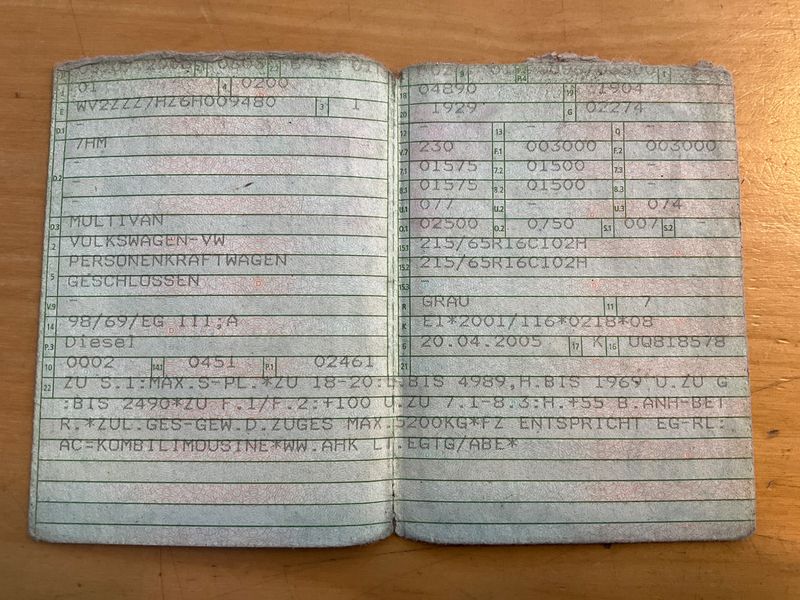 01 4 0200
E WV2ZZZ7HZ6H009480 3 1
D.1 -
7HM
D.2 -
-
-
D.3 MULTIVAN
2 VOLKSWAGEN-VW
5 PERSONENKRAFTWAGEN
GESCHLOSSEN
V.9 -
14 98/69/EG III;A
P.3 Diesel
10 0002 14.1 0451 P.1 02461
18 04890 19 1904
1929 G 02274
12 - 13 - Q -
V.7 230 F.1 003000 F.2 003000
7.1 01575 7.2 01500 7.3 -
8.1 01575 8.2 01500 8.3 -
U.1 077 U.2 - U.3 074
O.1 02500 O.2 0750 S.1 007 S.2
15.1 215/65R16C102H
15.2 215/65R16C102H
15.3 -
R GRAU 11 7
K E1*2001/116*0218*08
6 20.04.2005 17 K 16 UQ818578
21
22 ZU S.1:MAX.S-PL.*ZU 18-20:L.BIS 4989,H.BIS 1969 U.ZU G
:BIS 2490*ZU F.1/F.2:+100 U.ZU 7.1-8.3:H.+55 B.ANH-BET
R.*ZUL.GES-GEW.D.ZUGES MAX.5200KG*FZ ENTSPRICHT EG-RL:
AC=KOMBILIMOUSINE*WW.AHK LT.EGTG/ABE*